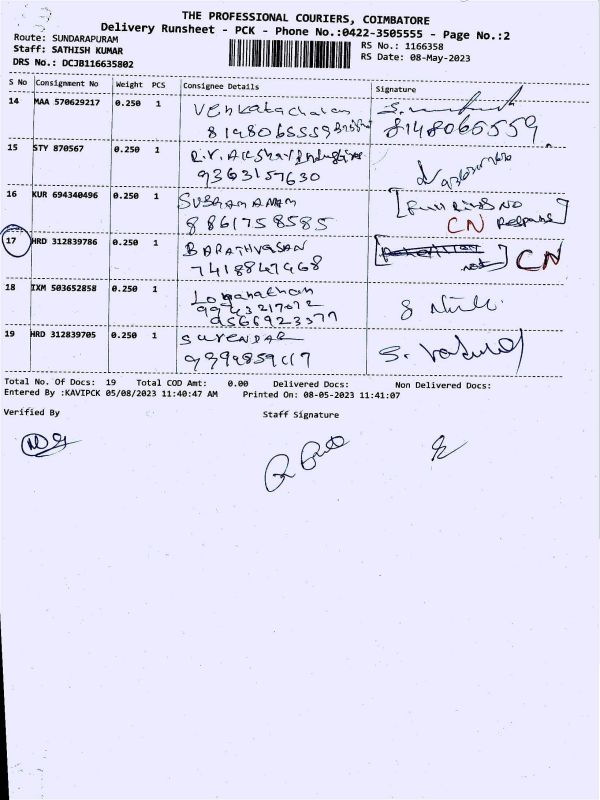 THE PROFESSIONAL COURIERS, COIMBATORE
Delivery Runsheet - PCK - Phone No.:0422-3505555 - Page No.:2
Route: SUNDARAPURAM
RS No.: 1166358
Staff: SATHISH KUMAR
RS Date: 08-May-2023
DRS No.: DCJB116635802
S No Consignment No Weight PCS Consignee Details Signature
14 MAA 570629217 0.250 1 Venkatachalam
8148065559 8148065559
15 STY 870567 0.250 1 R.V. Akshay Industries
9363157630
16 KUR 694340496 0.250 1 SUBRAMANAM [Full Rings NO
8861758585 CN Response]
17 HRD 312839786 0.250 1 BARATHVASAN
7418847468 not CN
18 IXM 503652858 0.250 1 Loganathan
9943217072
9566923577
19 HRD 312839705 0.250 1 SURENDAR
Total No. Of Docs: 19 Total COD Amt: 0.00 Delivered Docs: Non Delivered Docs:
Entered By :KAVIPCK 05/08/2023 11:40:47 AM Printed On: 08-05-2023 11:41:07
Verified By Staff Signature